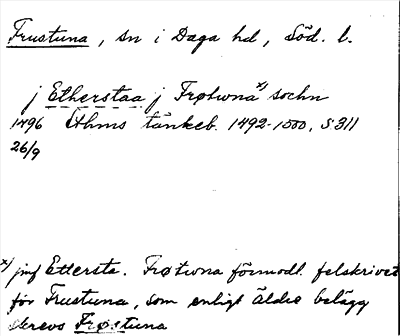 Frustuna, sn i Daga hd, Söd. l.
j Etherstaa j Frøtwna x) sochn
1496 Sthms tänkeb. 1492-1500, s 311
26/9
x) jmf Ettersta. Frøtwna förmodl. felskrivet
för Frustuna, som enligt äldre belägg
skrevs Frøstuna